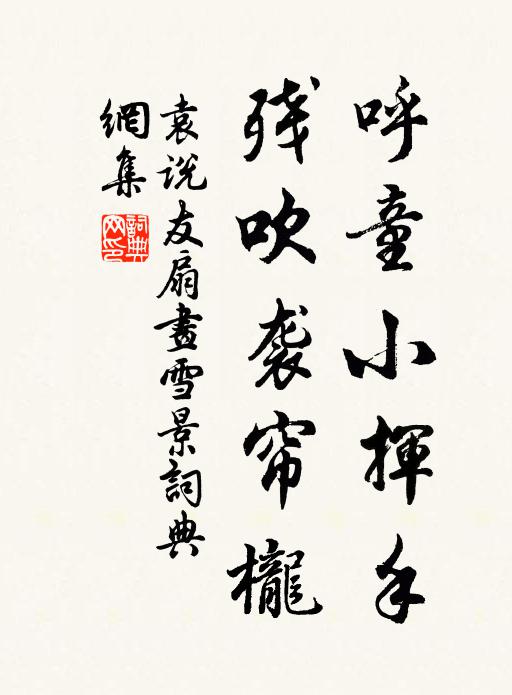 呼童小揮手
残吹袭帘櫳
袁说友扇畫雪景詞典
網集
詞典網印